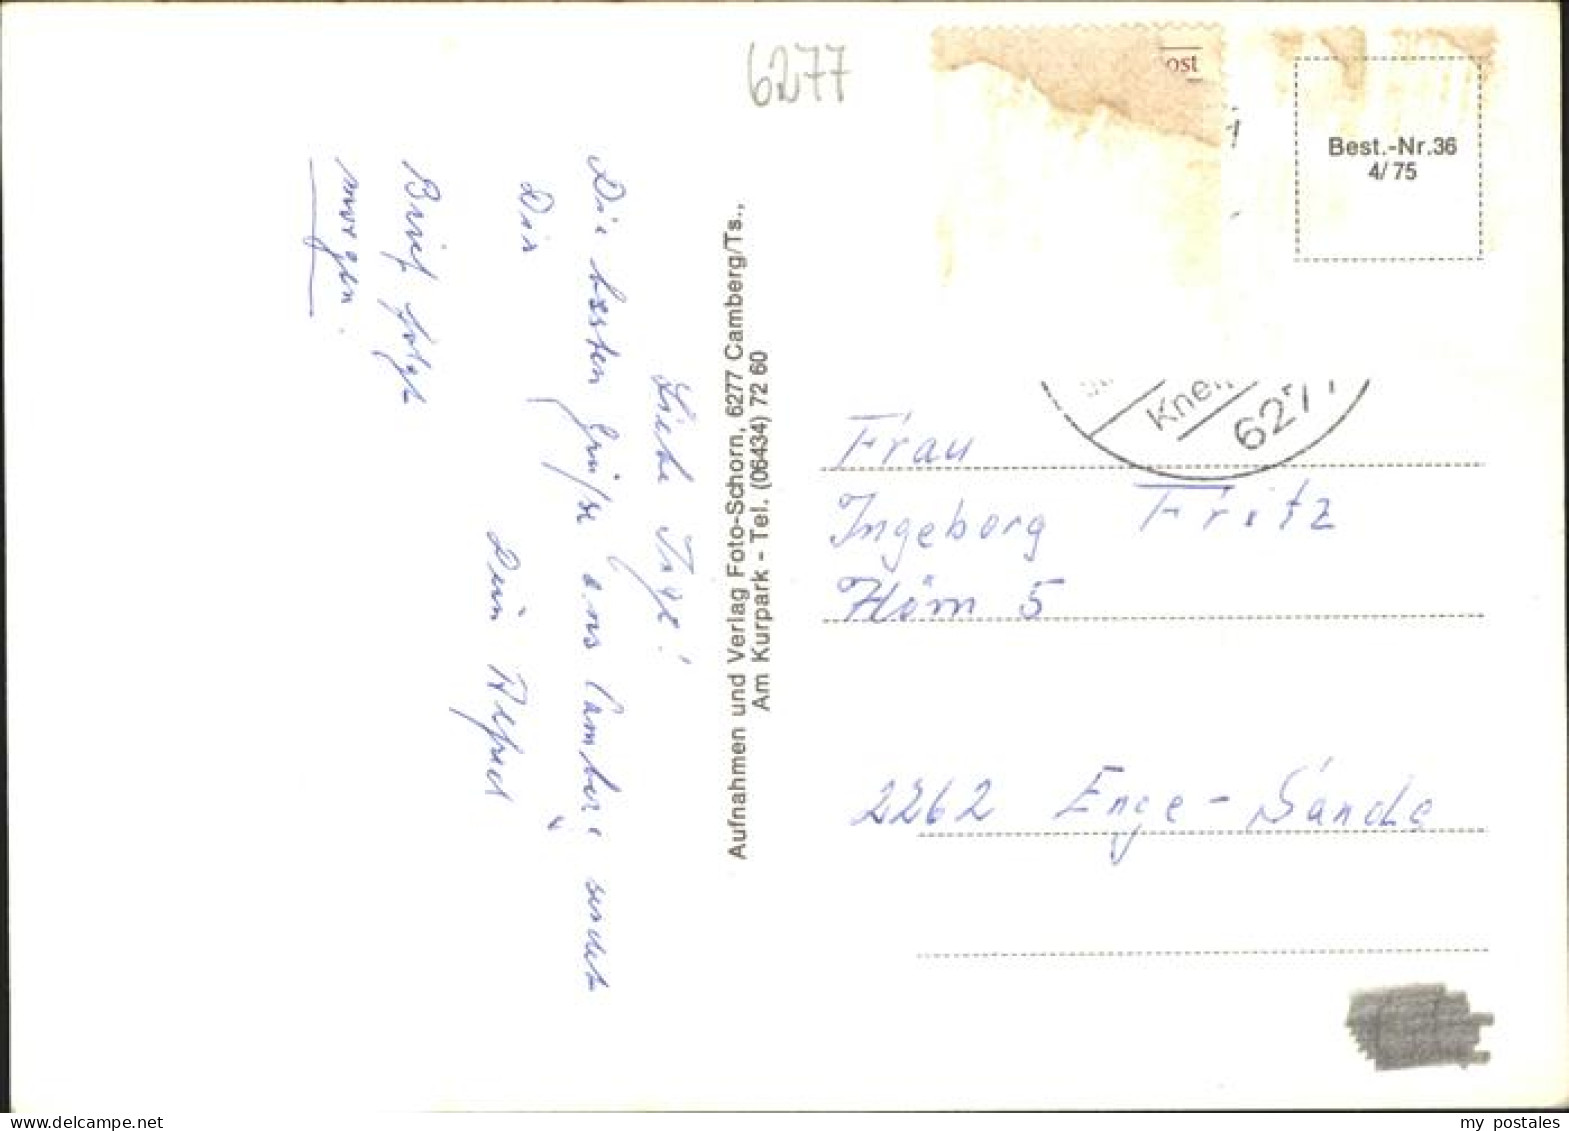 6277
ost
Best.-Nr.36
4/75
Liebe Inge!
Die besten Grüße aus Camberg sendet
Dir
Dein Alfred
Brief folgt
morgen.
Aufnahmen und Verlag Foto-Schorn, 6277 Camberg/Ts.,
Am Kurpark - Tel. (06434) 72 60
Knei
6277
Frau
Ingeborg Fritz
Hörn 5
2262 Enge-Sande
delcampe.net
my_postales